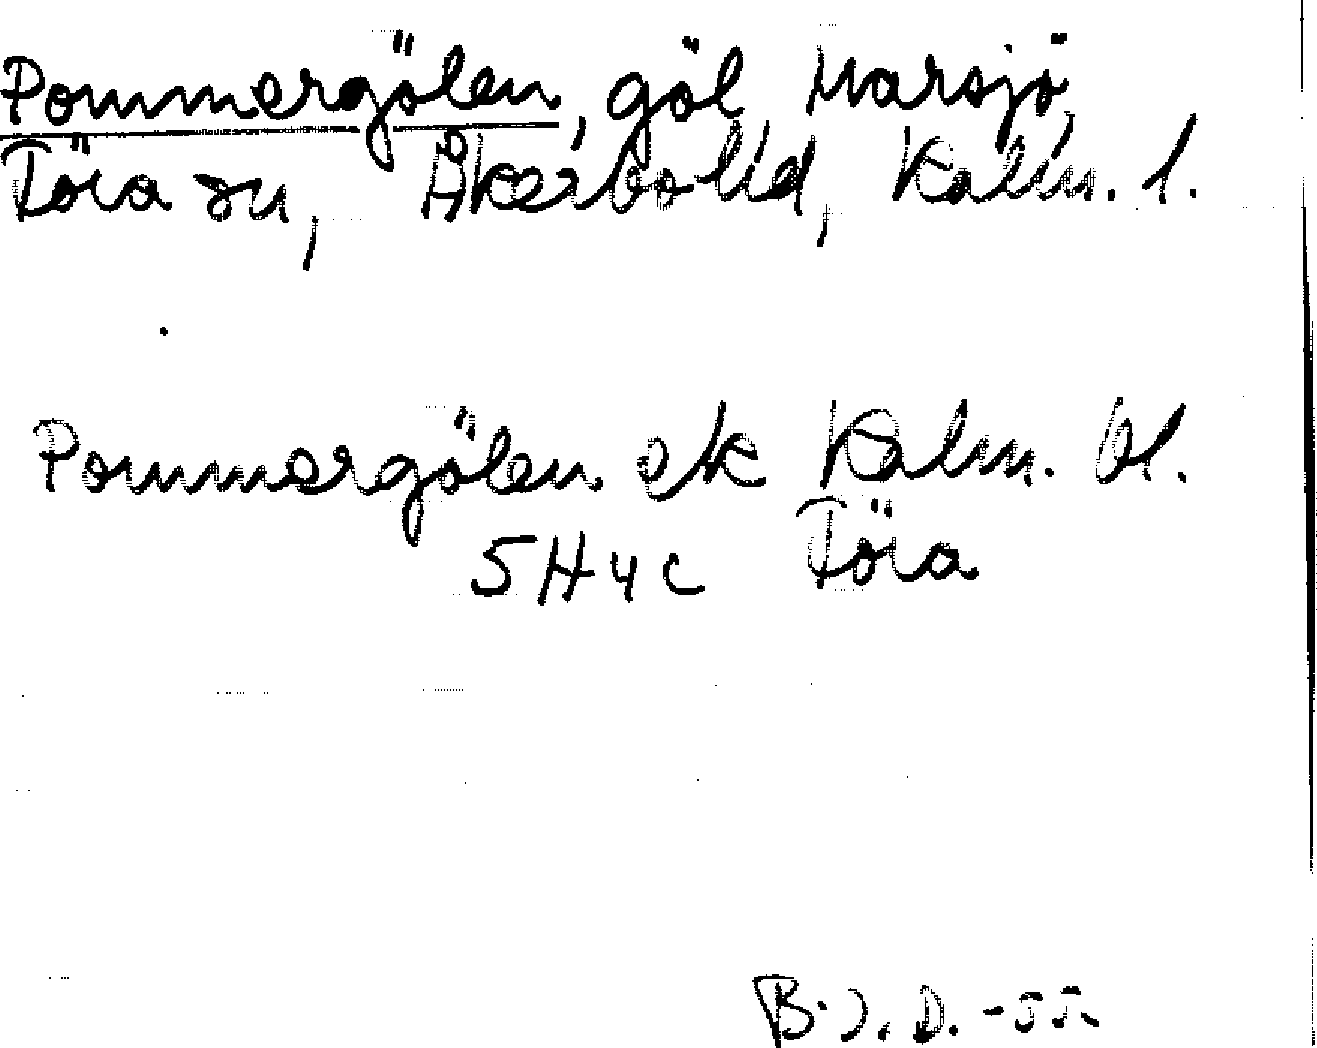 Pommergölen, göl Marsjö,
Töra sn, Åkerbo hd, Kalm. l.
Pommergölen ek Kalm. bl.
5H4c Töra
B.J.D. -55